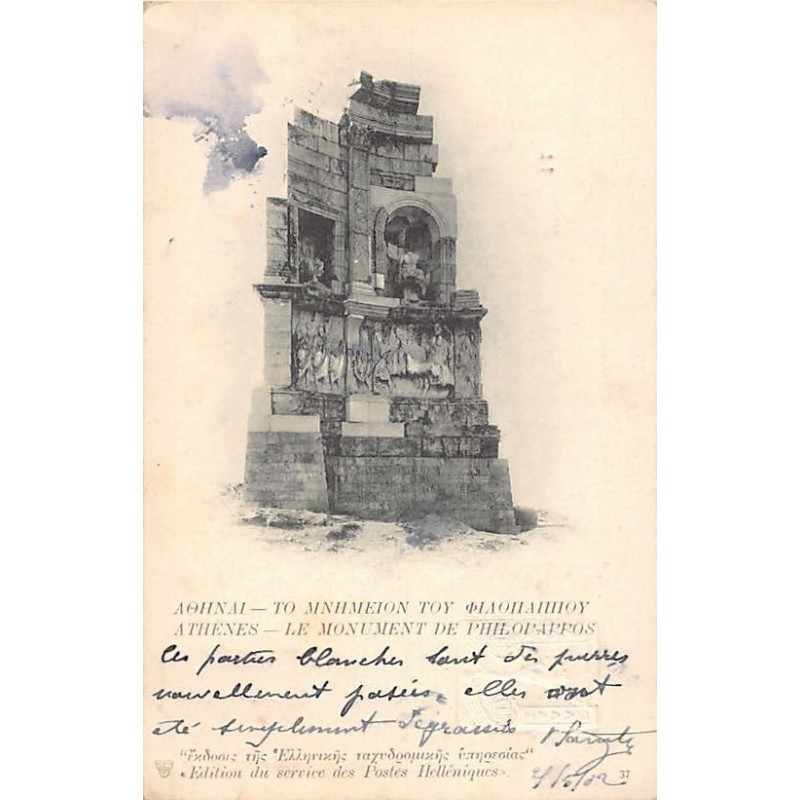 ΑΘΗΝΑΙ — ΤΟ ΜΝΗΜΕΙΟΝ ΤΟΥ ΦΙΛΟΠΑΠΠΟΥ
ATHÈNES — LE MONUMENT DE PHILOPAPPOS
Ces parties blanches sont des pierres
nouvellement posées, elles
été simplement
"ἔκδοσις τῆς Ἑλληνικῆς ταχυδρομικῆς ὑπηρεσίας"
«Edition du service des Postes Helléniques».
37